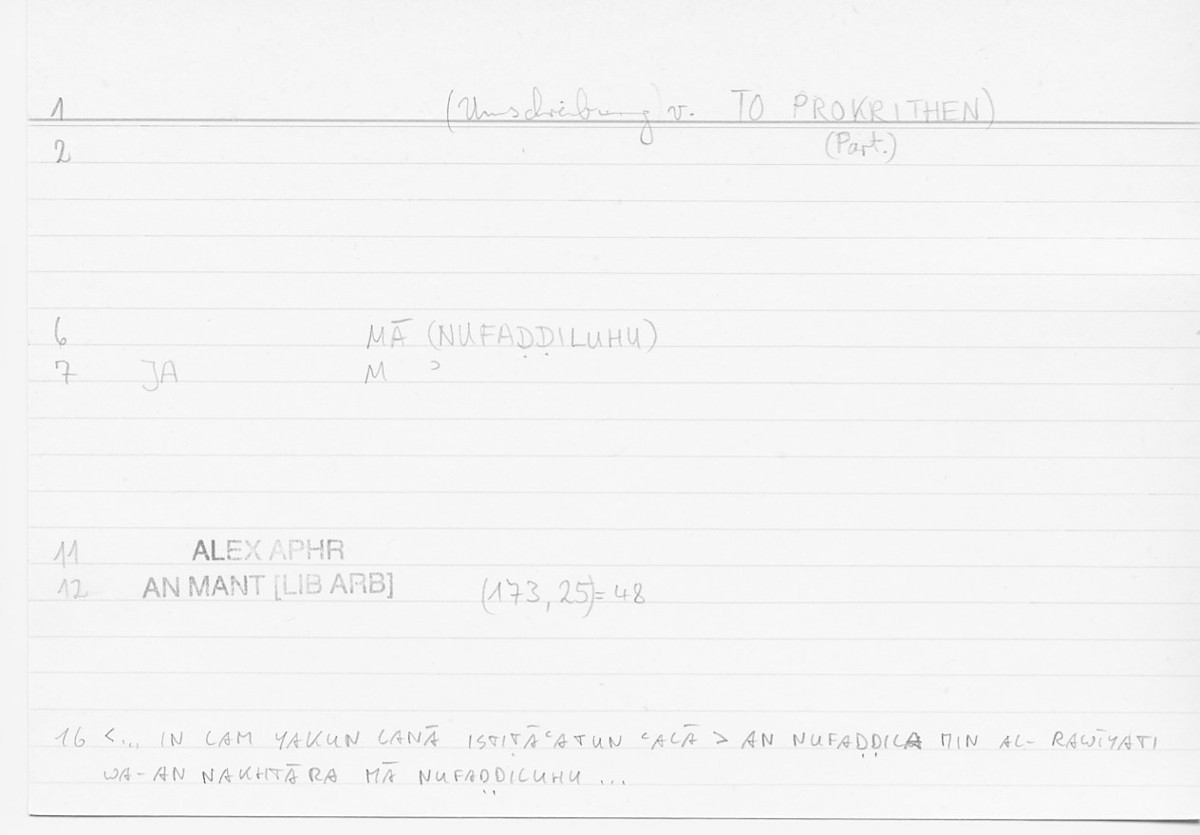 1 (Umschreibung v. TO PROKRITHEN)
2 (Part.)
6 MĀ (NUFAḌḌILUHU)
7 JA M ᵓ
11 ALEX APHR
12 AN MANT [LIB ARB] (173,25)=48
16 <... IN LAM YAKUN LANĀ ISTIṬĀᶜATUN ᶜALĀ > AN NUFAḌḌILA MIN AL-RAWĪYATI
WA-AN NAKHTĀRA MĀ NUFAḌḌILUHU ...